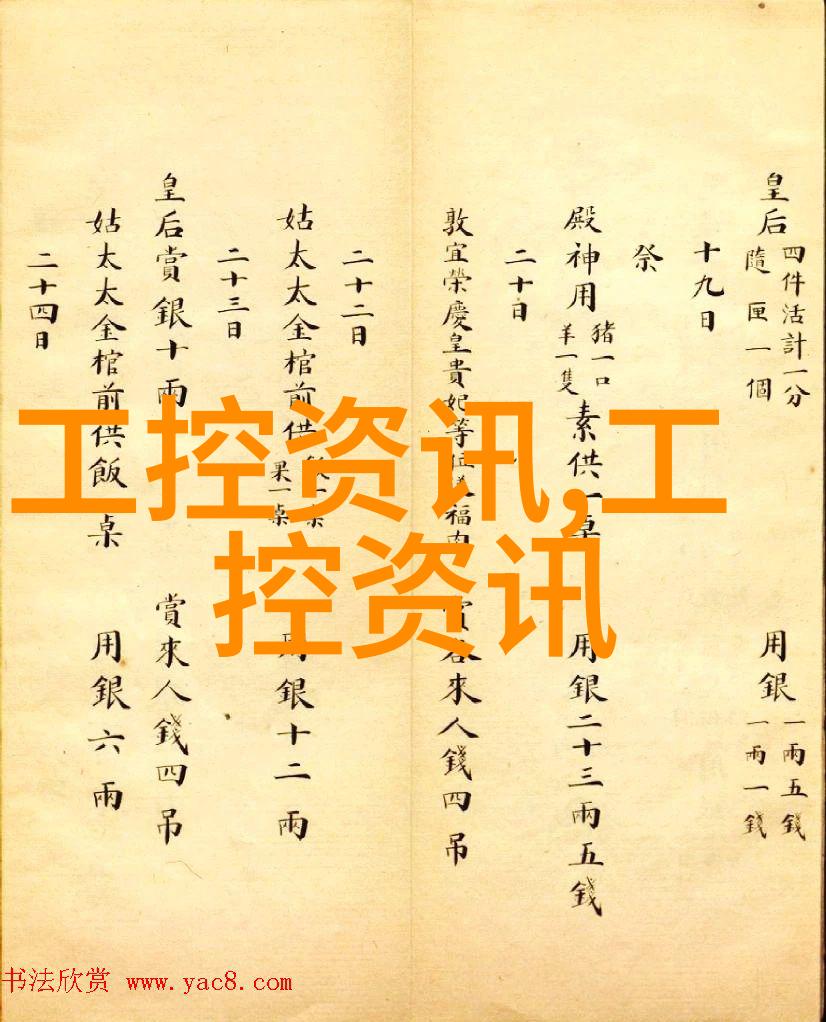 皇后 四件活計一分 隨匣一個 用銀 一兩五錢 一兩一錢
十九日
祭
殿神用 豬一口 羊一隻 素供一桌 用銀二十三兩五錢
二十日
敦宜榮慶皇貴妃等位 福肉 賞 來人錢四吊
二十二日
姑太太金棺前供 飯一桌 果一桌 用銀十二兩
二十三日
皇后賞銀十兩 賞來人錢四吊
姑太太金棺前供飯一桌 用銀六兩
二十四日
工控资讯,工
控资讯
书法欣赏 www.yac8.com